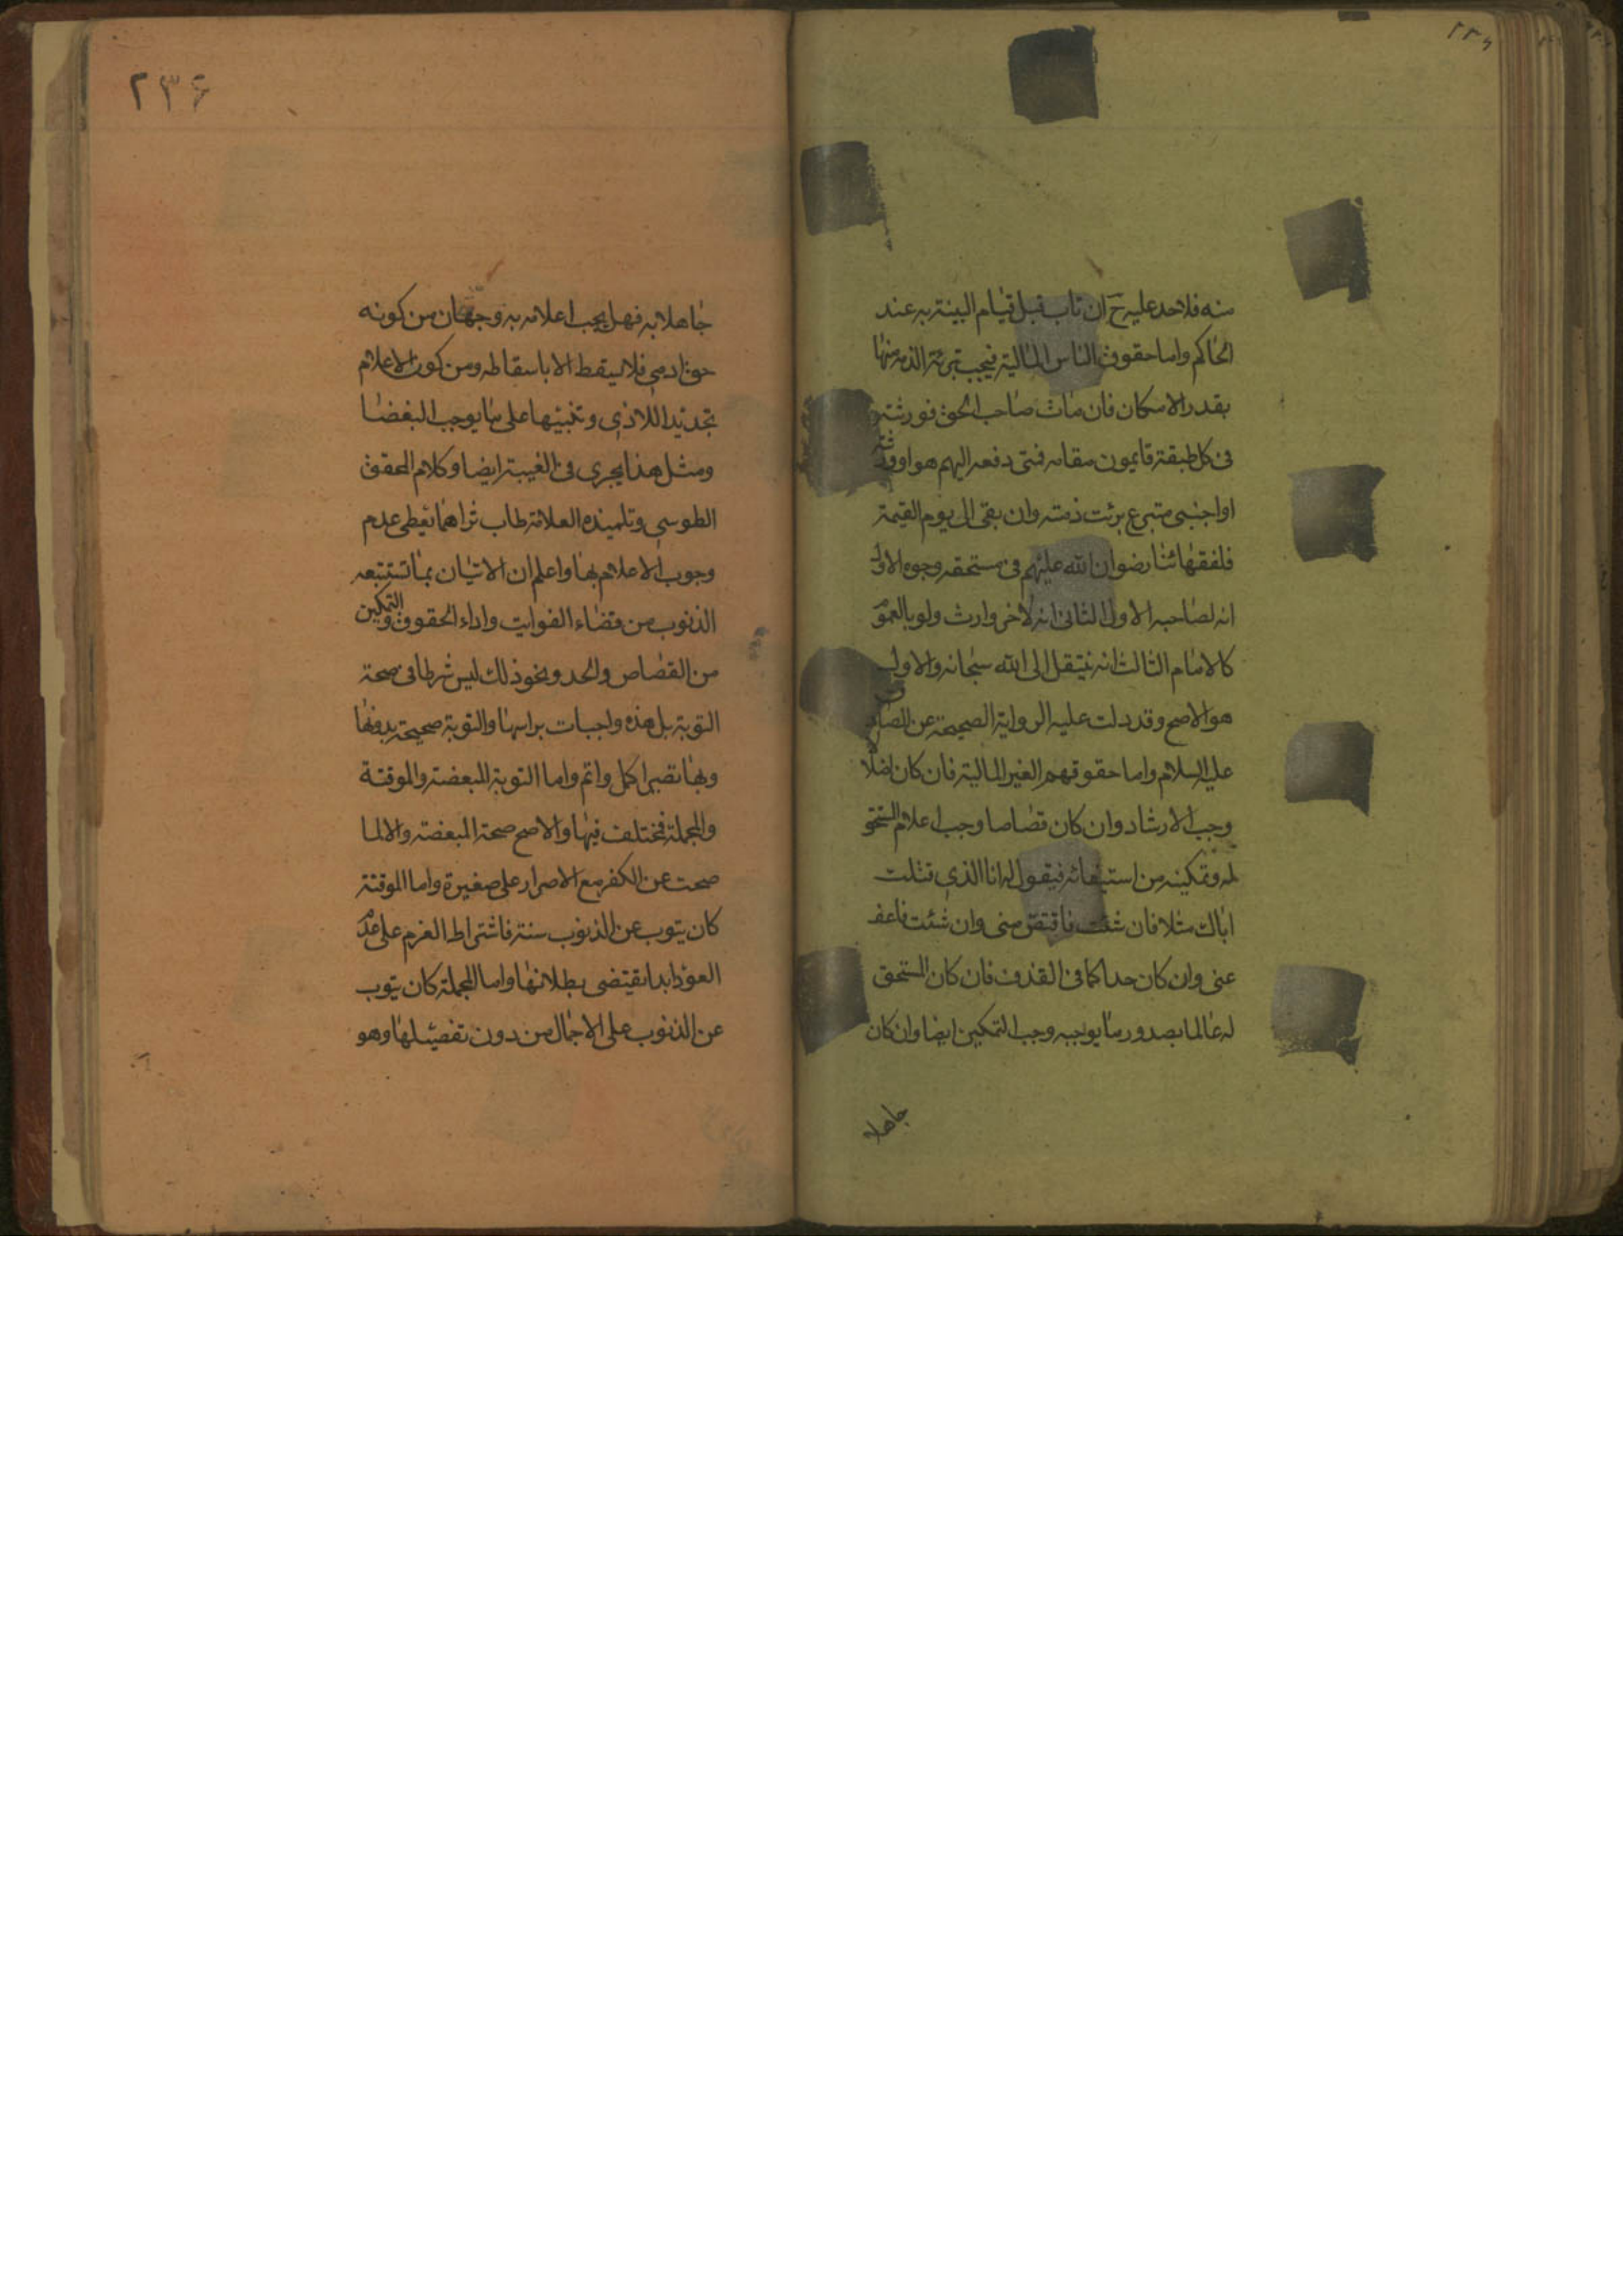 منه فلا حد عليه ح ان تاب قبل قيام البينة به عند
الحاكم واما حقوق الناس المالية فيجب تبرئة الذمه منها
بقدر الامكان فان مات صاحب الحق فورثته
فى كل طبقة قايمون مقامه فمتى دفعه اليهم هو او ورثته
او اجنبى متبرع برئت ذمته وان بقى الى يوم القيمة
فلفقهائنا رضوان الله عليهم فى مستحقه وجوه الاول
انه لصاحبه الاول الثانى انه لاخر وارث ولو بالعموم
كالامام الثالث انه ينتقل الى الله سبحانه والاول
هو الاصح وقد دلت عليه الرواية الصحيحة عن الصادق
عليه السلام واما حقوقهم الغير المالية فان كان اضلالا
وجب الارشاد وان كان قصاصا وجب اعلام المستحق
له وتمكينه من استيفائه فيقول له انا الذى قتلت
اباك مثلا فان شئت فاقتص منى وان شئت فاعف
عنى وان كان حدا كما فى القذف فان كان المستحق
له عالما بصدور ما يوجبه وجب التمكين ايضا وان كان
جاهلا
۲۳۶
جاهلا به فهل يجب اعلامه به وجهان من كونه
حق ادمى فلا يسقط الا باسقاطه ومن كون الاعلام
تجديد اللاذى وتنبيها على ما يوجب البغضا
ومثل هذا يجرى فى الغيبة ايضا وكلام المحقق
الطوسى وتلميذه العلامة طاب ثراهما يعطى عدم
وجوب الاعلام بها واعلم ان الاتيان بما تستتبعه
الذنوب من قضاء الفوايت واداء الحقوق والتمكين
من القصاص والحد ونحو ذلك ليس شرطا فى صحة
التوبة بل هذه واجبات براسها والتوبة صحيحة بدونها
وبها تصير اكمل واتم واما التوبة المبعضة والموقتة
والمجملة فمختلف فيها والاصح صحة المبعضة والا لما
صحت عن الكفر مع الاصرار على صغيرة واما الموقتة
كان يتوب عن الذنوب سنة فاشتراط العزم على عدم
العود ابدا يقتضى بطلانها واما المجملة كان يتوب
عن الذنوب على الاجمال من دون تفصيلها وهو